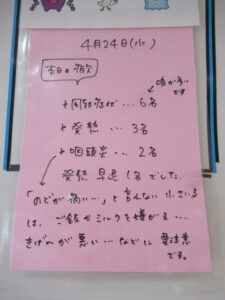 4月24日(水)
本日の病欠
咳が多いです
+ 風邪症状 … 6名
+ 発熱 … 3名
+ 咽頭炎 … 2名
発熱 早退 1名 でした。
「のどが痛い…」と 言えない 小さい子
は、ご飯やミルクを嫌がる…
きげんが 悪い … などに 要注意
です。